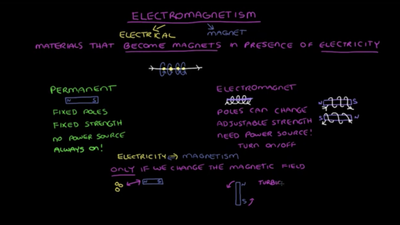 ELECTROMAGNETISM
ELECTRICAL MAGNET
MATERIALS THAT BECOME MAGNETS IN PRESENCE OF ELECTRICITY
PERMANENT
S
FIXED POLES
FIXED STRENGTH
NO POWER SOURCE
ALWAYS ON!
ELECTROMAGNET
POLES CAN CHANGE
ADJUSTABLE STRENGTH
NEED POWER SOURCE!
TURN ON/OFF
N S
S N
ELECTRICITY ⇌ MAGNETISM
ONLY IF WE CHANGE THE MAGNETIC FIELD
N
S